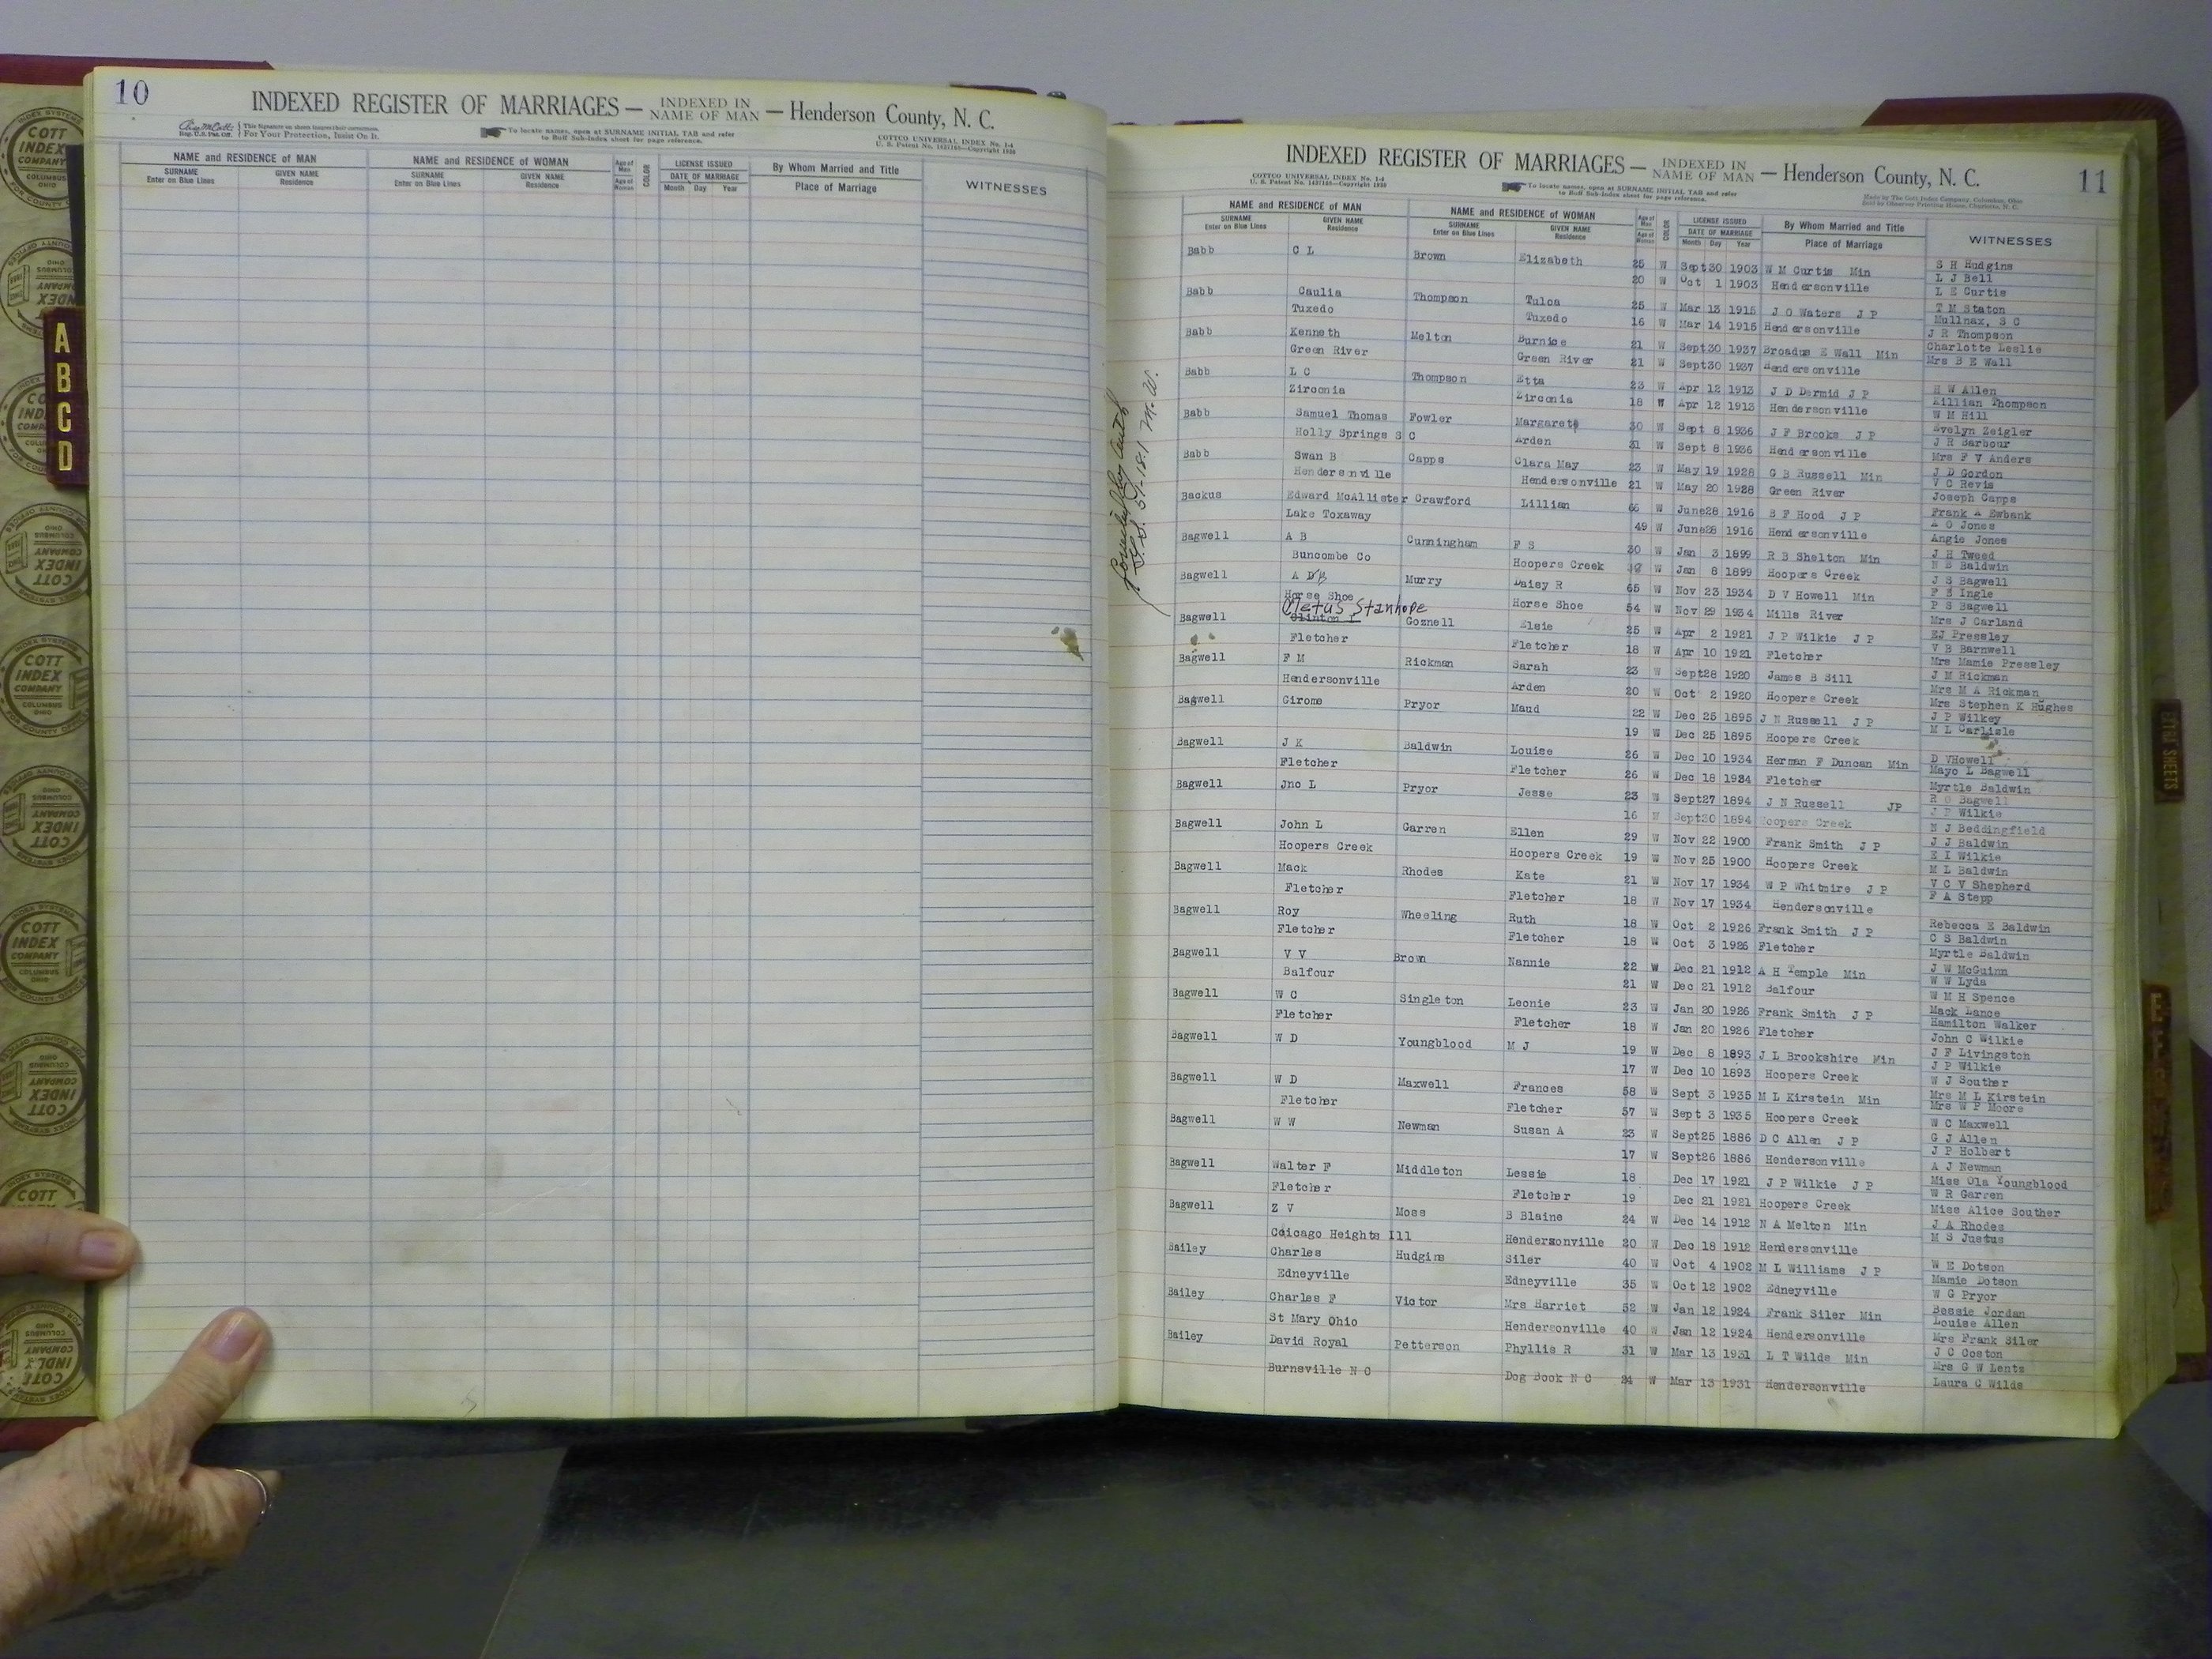 10
INDEXED REGISTER OF MARRIAGES — INDEXED IN NAME OF MAN — Henderson County, N. C.
This Signature on sheets insures their correctness.
Reg. U.S. Pat. Off. For Your Protection, Insist On It.
To locate names, open at SURNAME INITIAL TAB and refer to Buff Sub-Index sheet for page reference.
COTTCO UNIVERSAL INDEX No. 1-4
NAME and RESIDENCE OF MAN NAME and RESIDENCE OF WOMAN Age of Man Age of Woman COLOR LICENSE ISSUED DATE OF MARRIAGE By Whom Married and Title WITNESSES
SURNAME Enter on Blue Lines GIVEN NAME Residence SURNAME Enter on Blue Lines GIVEN NAME Residence Month Day Year Place of Marriage
A
B
C
D
COTT
INDEX
COMPANY
COLUMBUS
OHIO
INDEXED REGISTER OF MARRIAGES — INDEXED IN NAME OF MAN — Henderson County, N. C. 11
COTTCO UNIVERSAL INDEX No. 1-4
To locate names, open at SURNAME INITIAL TAB and refer to Buff Sub-Index sheet for page reference.
Made by The Cott Index Company, Columbus, Ohio
Sold by Observer Printing House, Charlotte, N. C.
NAME and RESIDENCE OF MAN NAME and RESIDENCE OF WOMAN Age of Man Age of Woman COLOR LICENSE ISSUED DATE OF MARRIAGE By Whom Married and Title WITNESSES
SURNAME Enter on Blue Lines GIVEN NAME Residence SURNAME Enter on Blue Lines GIVEN NAME Residence Month Day Year Place of Marriage
Babb C L Brown Elizabeth 25 W Sept 30 1903 W M Curtis Min S H Hudgins
20 W Oct 1 1903 Hendersonville L J Bell
L E Curtis
Babb Caulia Thompson Tuloa 25 W Mar 13 1915 J O Waters J P T M Staton
Tuxedo Tuxedo 16 W Mar 14 1915 Hendersonville Mullnax, S C
J R Thompson
Babb Kenneth Melton Burnice 21 W Sept 30 1937 Broadus E Wall Min Charlotte Leslie
Green River Green River 21 W Sept 30 1937 Hendersonville Mrs B E Wall
Babb L C Thompson Etta 23 W Apr 12 1913 J D Dermid J P H W Allen
Zirconia Zirconia 18 W Apr 12 1913 Hendersonville Killian Thompson
W M Hill
Babb Samuel Thomas Fowler Margaret 30 W Sept 8 1936 J F Brooks J P Evelyn Zeigler
Holly Springs S C Arden 31 W Sept 8 1936 Hendersonville J R Barbour
Mrs F V Anders
Babb Swan B Capps Clara May 23 W May 19 1928 G B Russell Min J D Gordon
Hendersonville Hendersonville 21 W May 20 1928 Green River V C Revis
Joseph Capps
Backus Edward McAllister Crawford Lillian 66 W June 28 1916 B F Hood J P Frank A Ewbank
Lake Toxaway 49 W June 28 1916 Hendersonville A O Jones
Angie Jones
Bagwell A B Cunningham F S 20 W Jan 3 1899 R B Shelton Min J H Tweed
Buncombe Co Hoopers Creek W Jan 8 1899 Hoopers Creek N E Baldwin
J S Bagwell
Bagwell A Murry Daisy R 65 W Nov 23 1934 D V Howell Min F E Ingle
Horse Shoe Horse Shoe 54 W Nov 29 1934 Mills River P S Bagwell
Mrs J Garland
Cletus Stanhope
Bagwell Clinton I Goznell Elsie 25 W Apr 2 1921 J P Wilkie J P EJ Pressley
Fletcher Fletcher 18 W Apr 10 1921 Fletcher V B Barnwell
Mrs Mamie Pressley
Bagwell F M Rickman Sarah 23 W Sept 28 1920 James B Sill J M Rickman
Hendersonville Arden 20 W Oct 2 1920 Hoopers Creek Mrs M A Rickman
Mrs Stephen K Hughes
Bagwell Girome Pryor Maud 22 W Dec 25 1895 J N Russell J P J P Wilkey
19 W Dec 25 1895 Hoopers Creek M L Carlisle
Bagwell J K Baldwin Louise 26 W Dec 10 1934 Herman F Duncan Min D VHowell
Fletcher Fletcher 26 W Dec 18 1934 Fletcher Mayo L Bagwell
Myrtle Baldwin
Bagwell Jno L Pryor Jesse 23 W Sept 27 1894 J N Russell JP R O Bagwell
16 W Sept 30 1894 Hoopers Creek J P Wilkie
N J Beddingfield
Bagwell John L Garren Ellen 29 W Nov 22 1900 Frank Smith J P J J Baldwin
Hoopers Creek Hoopers Creek 19 W Nov 25 1900 Hoopers Creek E I Wilkie
M L Baldwin
Bagwell Mack Rhodes Kate 21 W Nov 17 1934 W P Whitmire J P V C V Shepherd
Fletcher Fletcher 18 W Nov 17 1934 Hendersonville F A Stepp
Bagwell Roy Wheeling Ruth 18 W Oct 2 1926 Frank Smith J P Rebecca E Baldwin
Fletcher Fletcher 18 W Oct 3 1926 Fletcher C S Baldwin
Myrtle Baldwin
Bagwell V V Brown Nannie 22 W Dec 21 1912 A H Temple Min J W McGuinn
Balfour 21 W Dec 21 1912 Balfour W W Lyda
W M H Spence
Bagwell W C Singleton Leonie 23 W Jan 20 1926 Frank Smith J P Mack Lance
Fletcher Fletcher 18 W Jan 20 1926 Fletcher Hamilton Walker
John C Wilkie
Bagwell W D Youngblood M J 19 W Dec 8 1893 J L Brookshire Min J F Livingston
17 W Dec 10 1893 Hoopers Creek J P Wilkie
W J Souther
Bagwell W D Maxwell Frances 58 W Sept 3 1935 M L Kirstein Min Mrs M L Kirstein
Fletcher Fletcher 57 W Sept 3 1935 Hoopers Creek Mrs W P Moore
W C Maxwell
Bagwell W W Newman Susan A 23 W Sept 25 1886 D C Allen J P G J Allen
17 W Sept 26 1886 Hendersonville J P Holbert
A J Newman
Bagwell Walter F Middleton Lessie 18 Dec 17 1921 J P Wilkie J P Miss Ola Youngblood
Fletcher Fletcher 19 Dec 21 1921 Hoopers Creek W R Garren
Miss Alice Souther
Bagwell Z V Moss B Blaine 24 W Dec 14 1912 N A Melton Min J A Rhodes
Coicago Heights Ill Hendersonville 20 W Dec 18 1912 Hendersonville M S Justus
Bailey Charles Hudgins Siler 40 W Oct 4 1902 M L Williams J P W E Dotson
Edneyville Edneyville 35 W Oct 12 1902 Edneyville Mamie Dotson
W G Pryor
Bailey Charles F Victor Mrs Harriet 52 W Jan 12 1924 Frank Siler Min Bessie Jordan
St Mary Ohio Hendersonville 40 W Jan 12 1924 Hendersonville Louise Allen
Mrs Frank Siler
Bailey David Royal Petterson Phyllis R 31 W Mar 13 1931 L T Wilds Min J C Coston
Mrs G W Lentz
Burnsville N C Dog Book N C 24 W Mar 13 1931 Hendersonville Laura C Wilds
EXTRA SHEETS